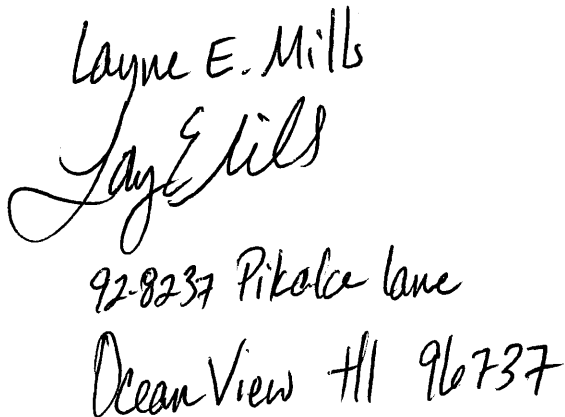 Layne E. Mills
92-8237 Pikake lane
Ocean View HI 96737